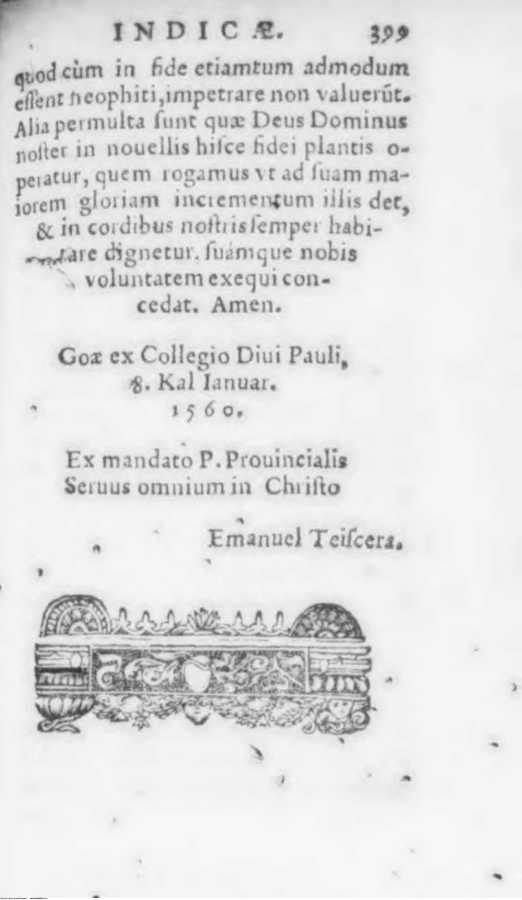 INDICÆ. 399
quod cùm in fide etiamtum admodum
eſſent neophiti, impetrare non valuerũt.
Alia permulta ſunt quæ Deus Dominus
noſter in nouellis hiſce fidei plantis o-
peratur, quem rogamus vt ad ſuam ma-
iorem gloriam incrementum illis det,
& in cordibus noſtris ſemper habi-
tare dignetur, ſuámque nobis
voluntatem exequi con-
cedat. Amen.
Goæ ex Collegio Diui Pauli,
8. Kal Ianuar.
1560.
Ex mandato P. Prouincialis
Seruus omnium in Chriſto
Emanuel Teiſcera.